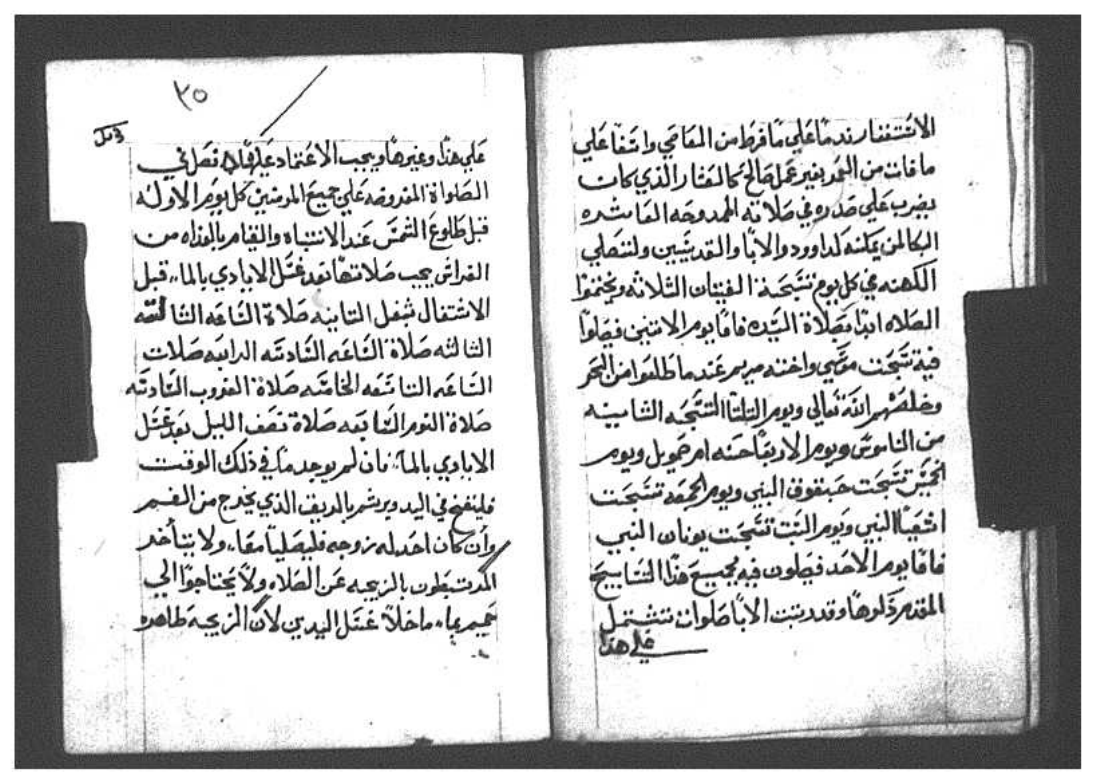 الاستغفار ندماً علي ما فرط من المعاصي واسفاً علي
ما فات من العمر بغير عمل صالح كالعشار الذي كان
يضرب علي صدره في صلاته الممدوحه العاشره
البكا لمن يمكنه لداوود والابا والقديسين ولتصلي
الكهنه في كل يوم تسبحة الفتيان الثلاثه ويختموا
الصلاه ابدا بصلاة السيده فاما يوم الاتنين فيصلوا
فيه تسبحت موسي واخته مريم عند ما طلعوا من البحر
وخلصهم الله تعالي ويوم التلتا التسبحه الثانيه
من الناموس ويوم الاربعا حنه ام صمويل ويوم
الخميس تسبحت حبقوق النبي ويوم الجمعه تسبحت
اشعيا النبي ويوم السبت تسبحت يونان النبي
فاما يوم الاحد فيصلون فيه بجميع هذا التسابيح
المقدم ذكرها وقد رتبت الابا صلوات تشتمل
علي هذا
٣٥
علي هذا وغيرها ويجب الاعتماد عليها فصل في
الصلواة المفروضه علي جميع المومنين كل يوم الاوله
قبل طلوع الشمس عند الانتباه والقيام بالغداه من
الفراش يجب صلاتها بعد غسل الايادي بالماء قبل
الاشتغال شغل التانيه صلاة الساعه التالته
التالته صلاة الساعه السادسه الرابعه صلات
الساعه التاسعه الخامسه صلاة الغروب السادسه
صلاة النوم السابعه صلاة نصف الليل بعد غسل
الايادي بالماء فان لم يوجد ما في ذلك الوقت
فلينفخ في اليد ويرشم بالريق الذي يخرج من الفم
وان كان احد له زوجه فليصليا معا ولا يتأخر
المرتبطون بالزيجه عن الصلاه ولا يحتاجوا الي
حميم بماء ما خلا غسل اليدين لان الزيجه طاهره